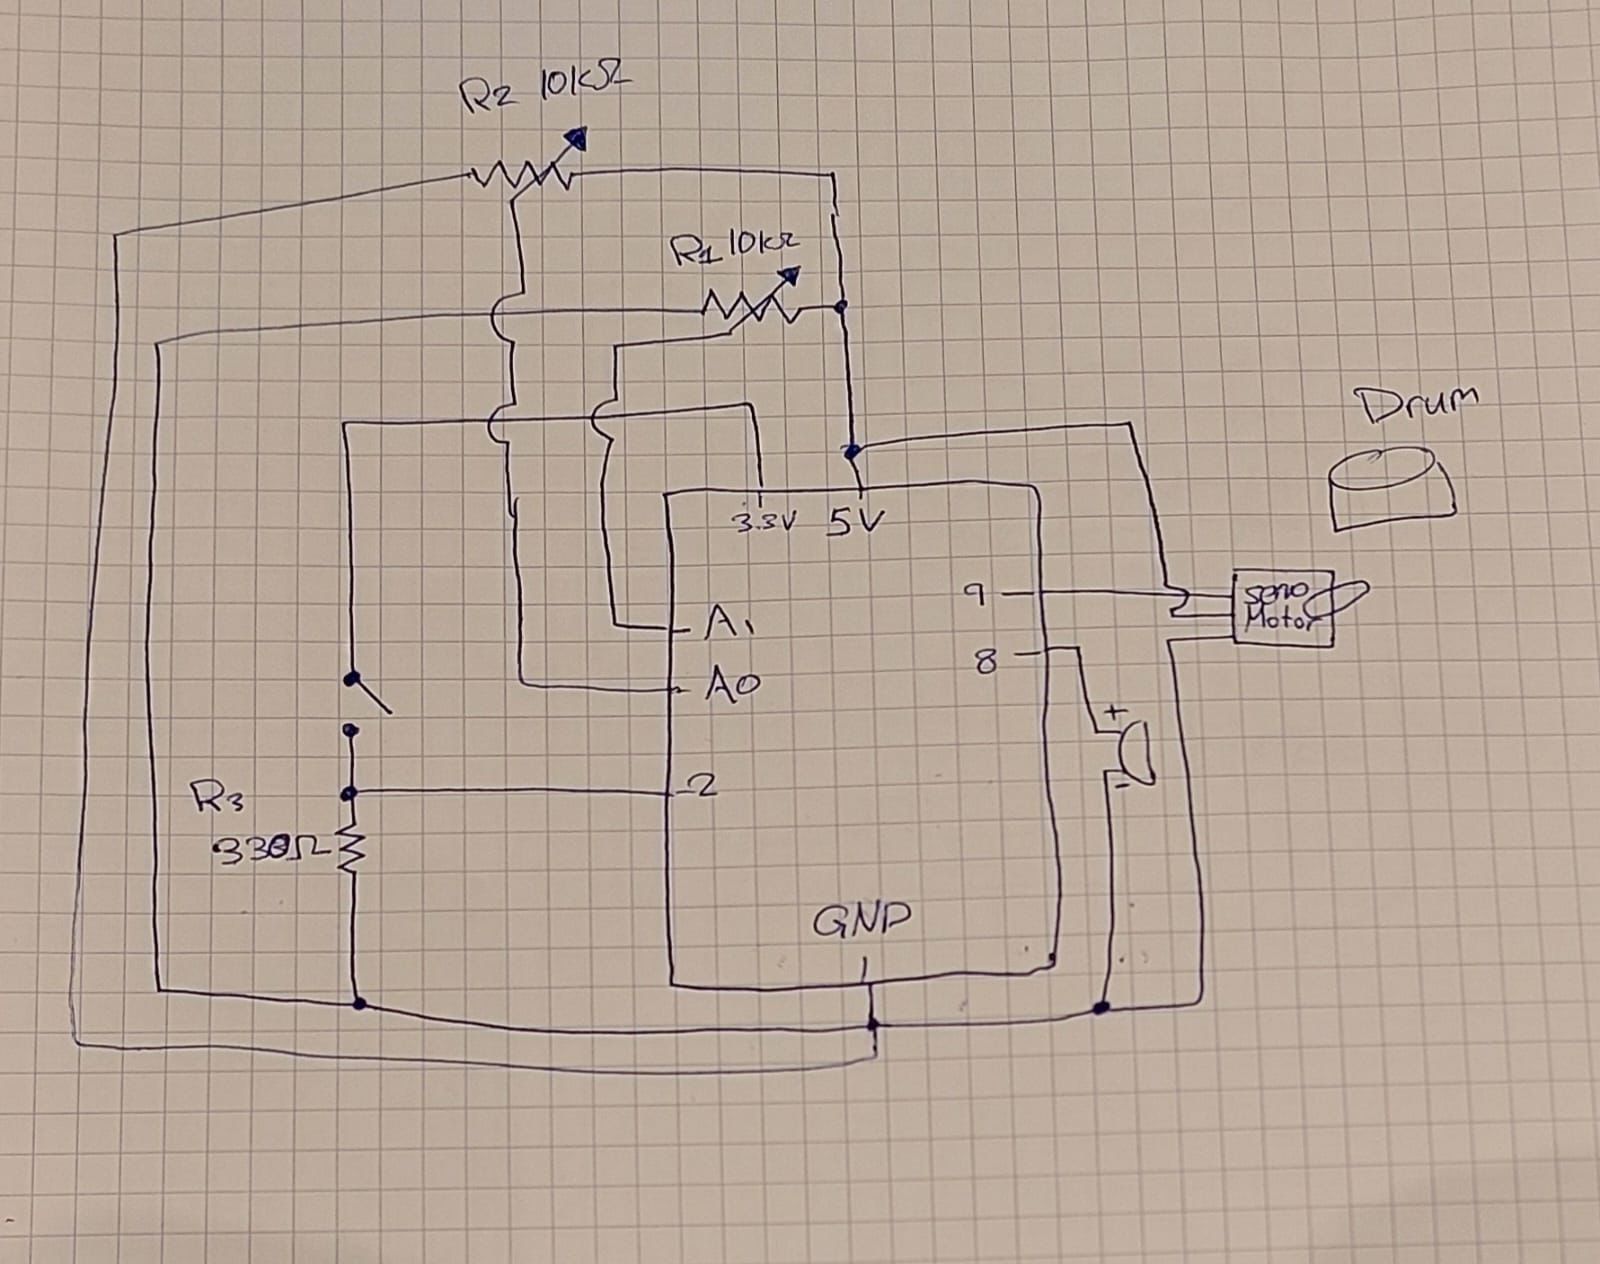 R2 10kΩ
R1 10kΩ
Drum
3.3V 5V
9
servo
Motor
A1
8
A0
+
R3
2
-
330Ω
GND